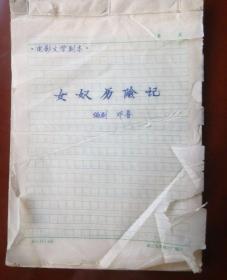 ·电影文学剧本·
女奴历险记
编剧 邓普